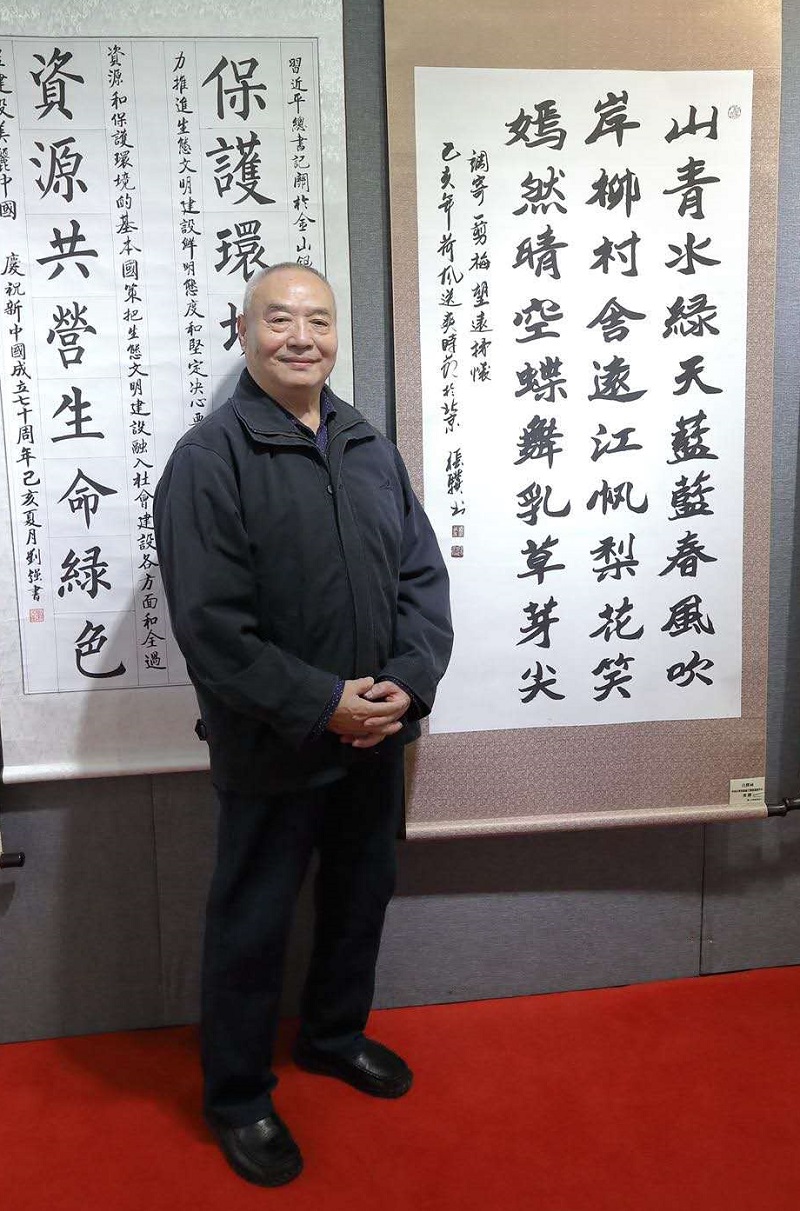 山青水緑天藍藍春風吹
岸柳村舍遠江帆梨花笑
嫣然晴空蝶舞乳草芽尖
調寄一剪梅望遠抒懷
己亥年荷風送爽時節於北京
習近平總書記關於金山銀
保護環
力推進生態文明建設鮮明態度和堅定決心要
資源和保護環境的基本國策把生態文明建設融入社會建設各方面和全過
資源共營生命緑色
建設美麗中國
慶祝新中國成立七十周年己亥夏月劉強書